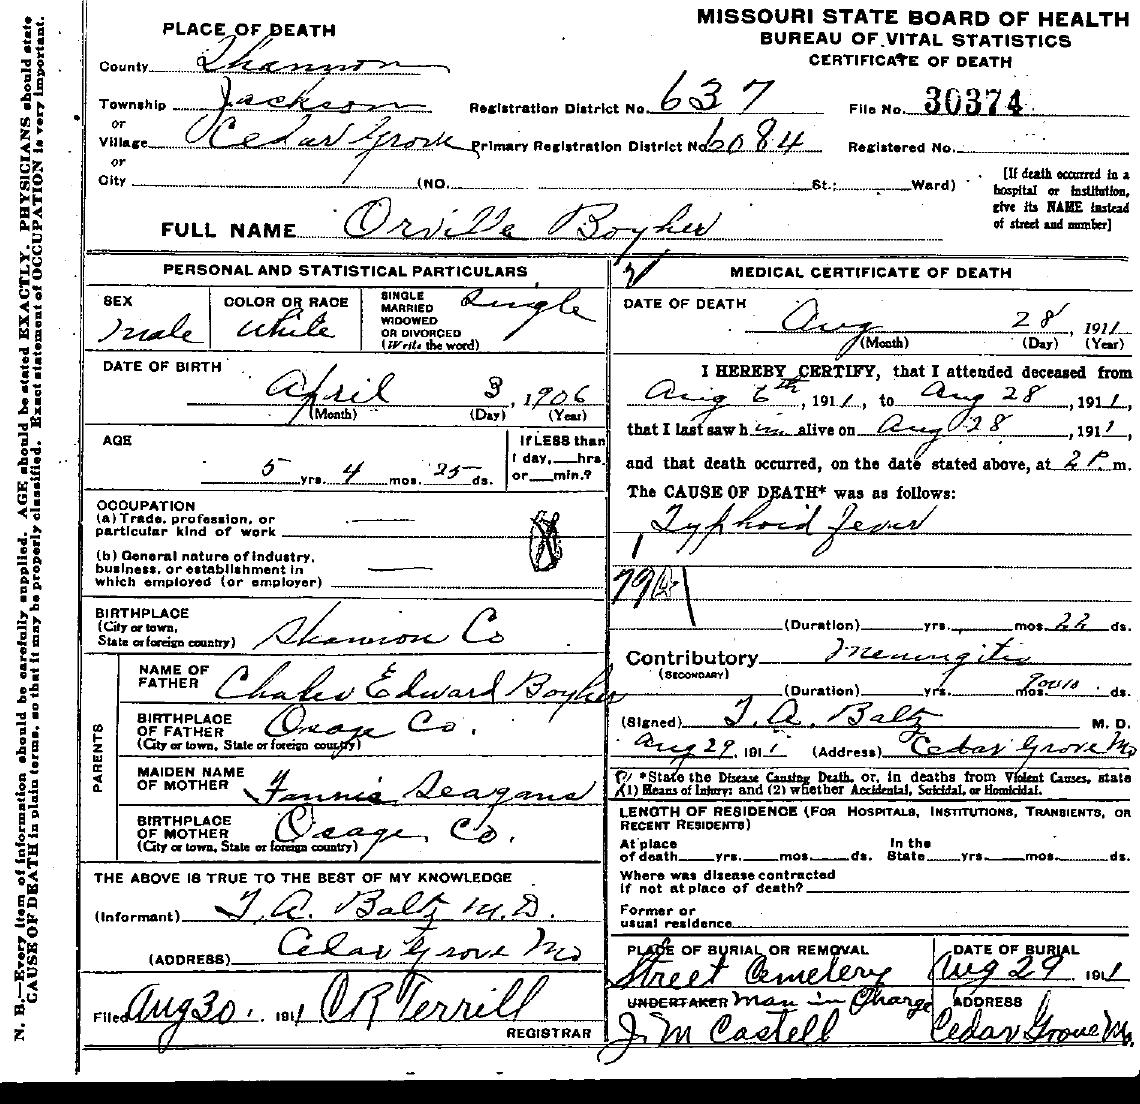 MISSOURI STATE BOARD OF HEALTH
BUREAU OF VITAL STATISTICS
CERTIFICATE OF DEATH
PLACE OF DEATH
County Shannon
Township Jackson
or
Village Cedar Grove
or
City (NO. St.; Ward)
Registration District No. 637
File No. 30374
Primary Registration District No. 6084
Registered No.
[If death occurred in a
hospital or institution,
give its NAME instead
of street and number]
FULL NAME Orville Boyher
PERSONAL AND STATISTICAL PARTICULARS
SEX
Male
COLOR OR RACE
White
SINGLE
MARRIED
WIDOWED
OR DIVORCED
(Write the word)
Single
DATE OF BIRTH
April 3, 1906
(Month) (Day) (Year)
AGE
5 yrs. 4 mos. 25 ds.
If LESS than
1 day, hrs.
or min.?
OCCUPATION
(a) Trade, profession, or
particular kind of work
(b) General nature of industry,
business, or establishment in
which employed (or employer)
BIRTHPLACE
(City or town,
State or foreign country) Shannon Co
PARENTS
NAME OF
FATHER Charles Edward Boyher
BIRTHPLACE
OF FATHER Osage Co.
(City or town, State or foreign country)
MAIDEN NAME
OF MOTHER Fannie Seagans
BIRTHPLACE
OF MOTHER Osage Co.
(City or town, State or foreign country)
THE ABOVE IS TRUE TO THE BEST OF MY KNOWLEDGE
(Informant) T. A. Baltz M.D.
(ADDRESS) Cedar Grove Mo
Filed Aug 30, 1911 C R Terrill
REGISTRAR
MEDICAL CERTIFICATE OF DEATH
DATE OF DEATH
Aug 28, 1911
(Month) (Day) (Year)
I HEREBY CERTIFY, that I attended deceased from
Aug 6th, 1911, to Aug 28, 1911,
that I last saw him alive on Aug 28, 1911,
and that death occurred, on the date stated above, at 2 P. m.
The CAUSE OF DEATH* was as follows:
Typhoid fever
(Duration) yrs. mos. 22 ds.
Contributory Meningitis
(SECONDARY)
(Duration) yrs. mos. ds.
(Signed) T. A. Baltz M. D.
Aug 29, 1911 (Address) Cedar Grove Mo
*State the Disease Causing Death, or, in deaths from Violent Causes, state
(1) Means of Injury; and (2) whether Accidental, Suicidal, or Homicidal.
LENGTH OF RESIDENCE (FOR HOSPITALS, INSTITUTIONS, TRANSIENTS, OR
RECENT RESIDENTS)
At place
of death yrs. mos. ds.
In the
State yrs. mos. ds.
Where was disease contracted
if not at place of death?
Former or
usual residence
PLACE OF BURIAL OR REMOVAL
Street Cemetery
DATE OF BURIAL
Aug 29 1911
UNDERTAKER Man in Charge
J. M Castell
ADDRESS
Cedar Grove Mo.
N. B.—Every item of information should be carefully supplied. AGE should be stated EXACTLY. PHYSICIANS should state
CAUSE OF DEATH in plain terms, so that it may be properly classified. Exact statement of OCCUPATION is very important.